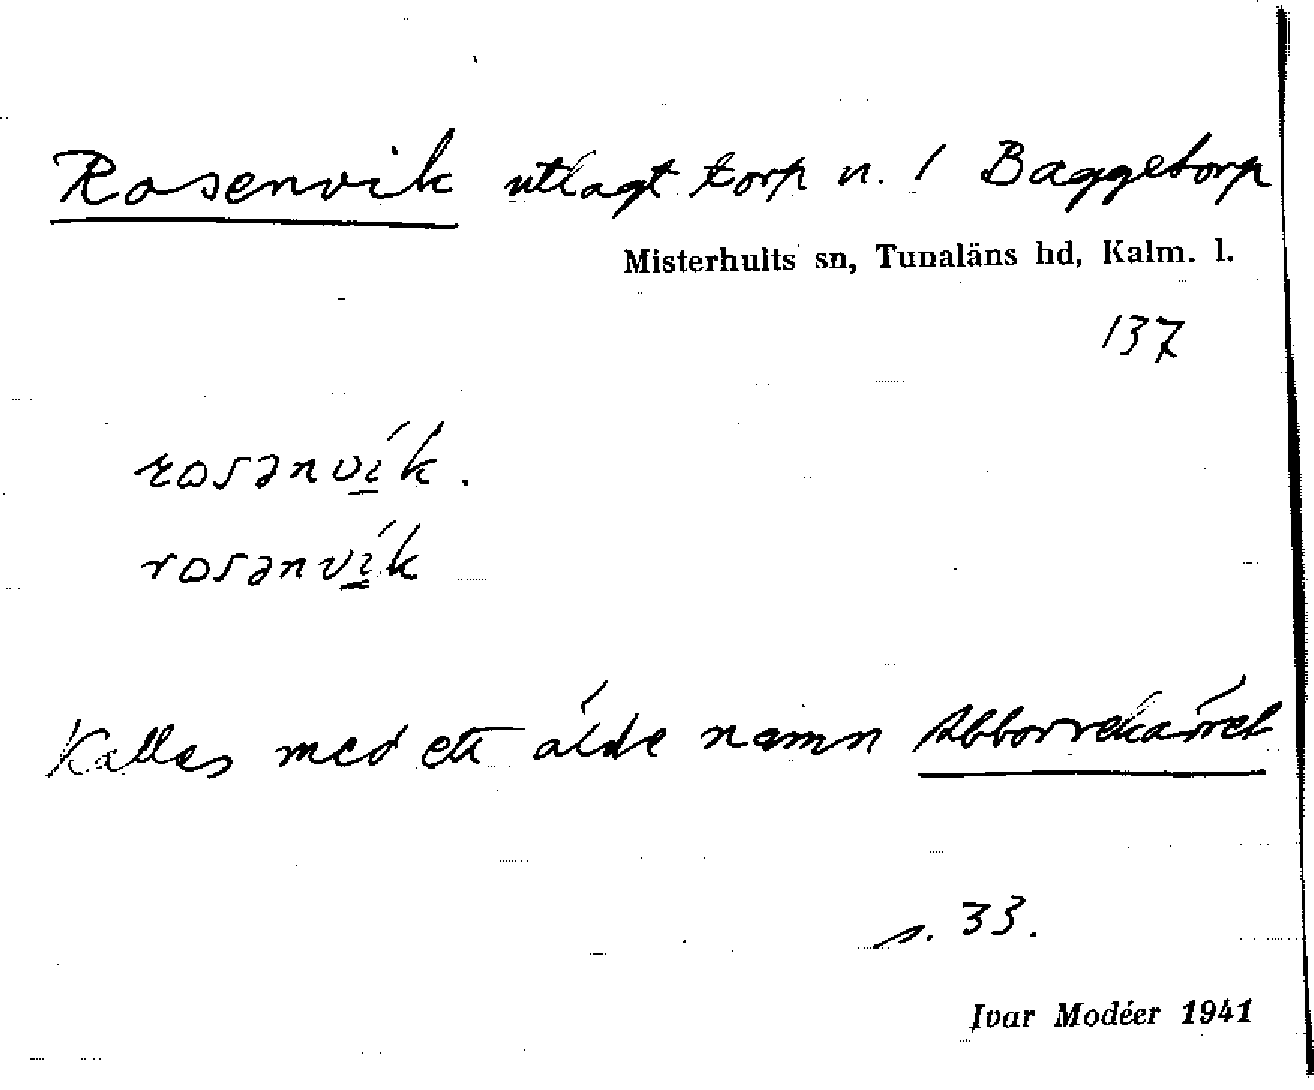 Rosenvik utlagt torp n. 1 Baggetorp
Misterhults sn, Tunaläns hd, Kalm. l.
137
rosənvík.
rosənvík
Kallas med ett älde namn Abborrekärret
s. 33.
Ivar Modéer 1941